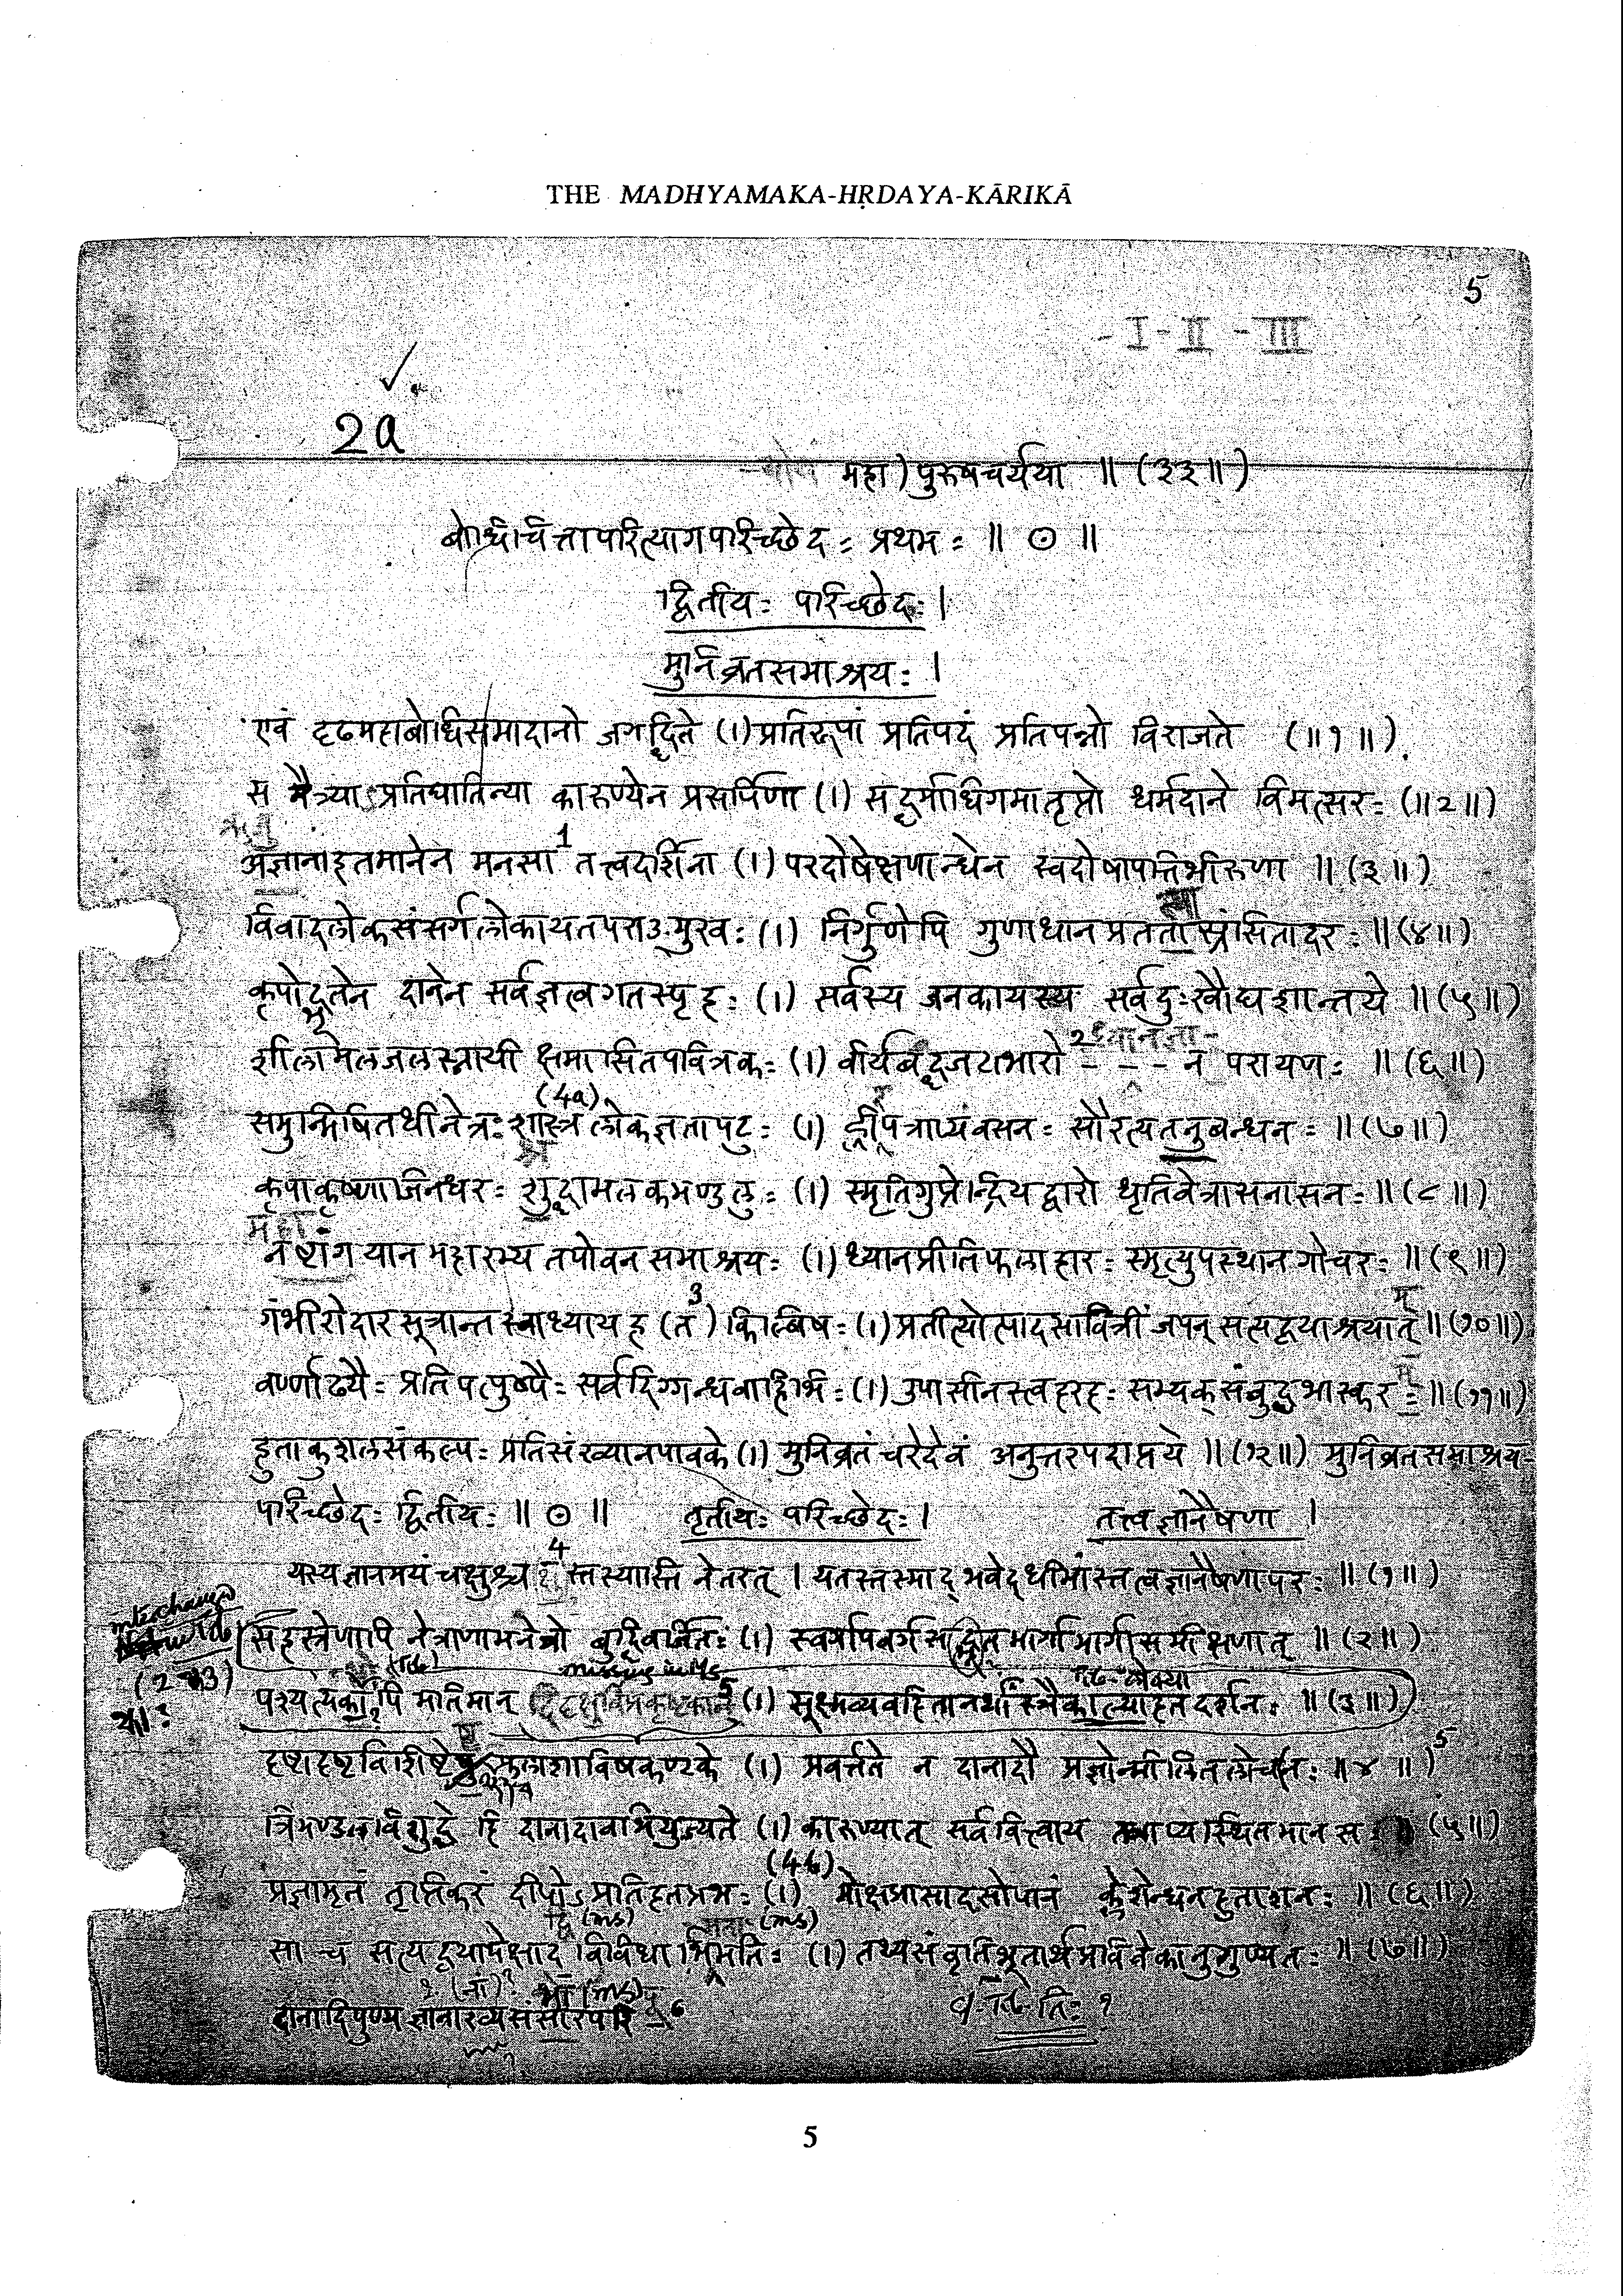 THE MADHYAMAKA-HṚDAYA-KĀRIKĀ
5
- I - II - III
2a
महा) पुरुषचर्यया ॥ (३३॥)
बोधिचित्तापरित्यागपरिच्छेदः प्रथमः ॥ ⊙ ॥
द्वितीयः परिच्छेदः ।
मुनिव्रतसमाश्रयः ।
एवं दृढमहाबोधिसमादानो जगद्धिते (।) प्रतिरूपां प्रतिपदं प्रतिपन्नो विराजते (॥१॥)
स मैत्र्याऽप्रतिघातिन्या कारुण्येन प्रसर्पिणा (।) सद्धर्माधिगमातृप्तो धर्मदाने विमत्सरः (॥२॥)
अज्ञानाहृतमानेन मनसा 1 तत्त्वदर्शिना (।) परदोषेक्षणान्धेन स्वदोषापत्तिभीरुणा ॥ (३॥)
विवादलोकसंसर्गलोकायतपराङ्मुखः (।) निर्गुणेपि गुणाधानप्रततास्रंसितादरः ॥ (४॥)
कृपोद्धतेन दानेन सर्वज्ञत्वगतस्पृहः (।) सर्वस्य जनकायस्य सर्वदुःखौघशान्तये ॥ (५॥)
शीलामलजलस्नायी क्षमासितपवित्रकः (।) वीर्यबद्धजटाभारो 2 - - - न परायणः ॥ (६॥)
(4a)
समुन्मिषितधीनेत्रः शास्त्रलोकज्ञतापटुः (।) ह्रीपत्राप्यंवसनः सौरत्यतनुबन्धनः ॥ (७॥)
कृपाकृष्णाजिनधरः शुद्धामलकमण्डलुः (।) स्मृतिगुप्तेन्द्रियद्वारो धृतिवेत्रासनासनः ॥ (८॥)
महा
यान महारम्य तपोवन समाश्रयः (।) ध्यानप्रीतिफलाहारः स्मृत्युपस्थान गोचरः ॥ (९॥)
गंभीरोदार सूत्रान्त स्वाध्याय ह (त 3) किल्बिषः (।) प्रतीत्योत्पादसावित्रीं जपन् सत्यद्वयाश्रयात् ॥ (१०॥)
वर्ण्णाढ्यैः प्रतिपत्पुष्पैः सर्वदिग्गन्धवाहिभिः (।) उपासीनस्त्वहरहः सम्यक्संबुद्धभास्करः ॥ (११॥)
हुताकुशलसंकल्पः प्रतिसंख्यानपावके (।) मुनिव्रतं चरेदेवं अनुत्तरपदाप्तये ॥ (१२॥) मुनिव्रतसमाश्रय-
परिच्छेदः द्वितीयः ॥ ⊙ ॥ तृतीयः परिच्छेदः । तत्त्वज्ञानैषणा ।
यस्य ज्ञानमयं चक्षुश्च 4 स्तस्यास्ति नेतरत् । यतस्तस्माद् भवेद्धीमांस्तत्त्वज्ञानैषणापरः ॥ (१॥)
interchange
सहस्रेणापि नेत्राणामनेत्रो बुद्धिवर्जितः (।) स्वर्गापवर्गसद्भूतमार्गामार्गासमीक्षणात् ॥ (२॥)
पश्यत्यको पि मतिमान् 5 (।) सूक्ष्मव्यवहितानर्थांस्त्रैकाल्याहतदर्शनः ॥ (३॥)
missing in Ms
प्रवर्त्तते न दानादौ प्रज्ञोन्मीलितलोचनः ॥४॥)
त्रिमण्डलविशुद्धे हि दानादावभियुज्यते (।) कारुण्यात् सर्ववित्त्वाय तत्राप्यस्थितमानसः (५॥)
(4b)
प्रज्ञामृतं तृप्तिकरं दीपोऽप्रतिहतप्रभः (।) मोक्षप्रासादसोपानं क्लेशेन्धनहुताशनः ॥ (६॥)
सा च सत्यद्वयापेक्षाद् द्विविधा भिमतिः (।) तथ्यसंवृतिभूतार्थप्रविवेकानुगुण्यतः ॥ (७॥)
दानादिपुण्य ज्ञानाख्य संसारपरि 6
5